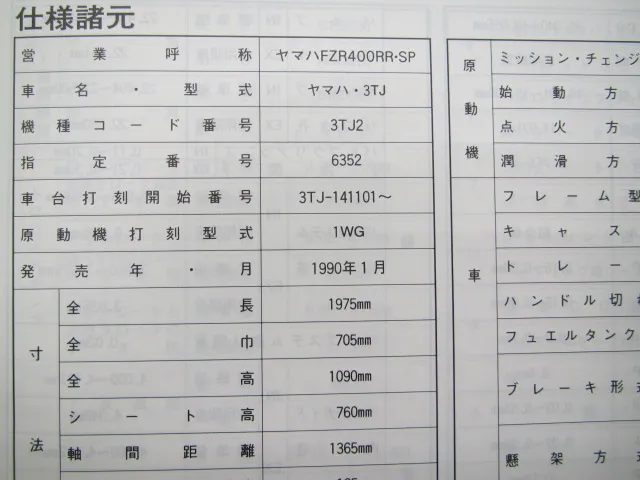 仕様諸元
営業呼称 ヤマハFZR400RR・SP
車名・型式 ヤマハ・3TJ
機種コード番号 3TJ2
指定番号 6352
車台打刻開始番号 3TJ-141101〜
原動機打刻型式 1WG
発売年・月 1990年1月
寸法
全長 1975mm
全巾 705mm
全高 1090mm
シート高 760mm
軸間距離 1365mm
原動機
ミッション・チェンジ
始動方
点火方
潤滑方
車
フレーム型
キャス
トレー
ハンドル切
フュエルタンク
ブレーキ形
懸架方